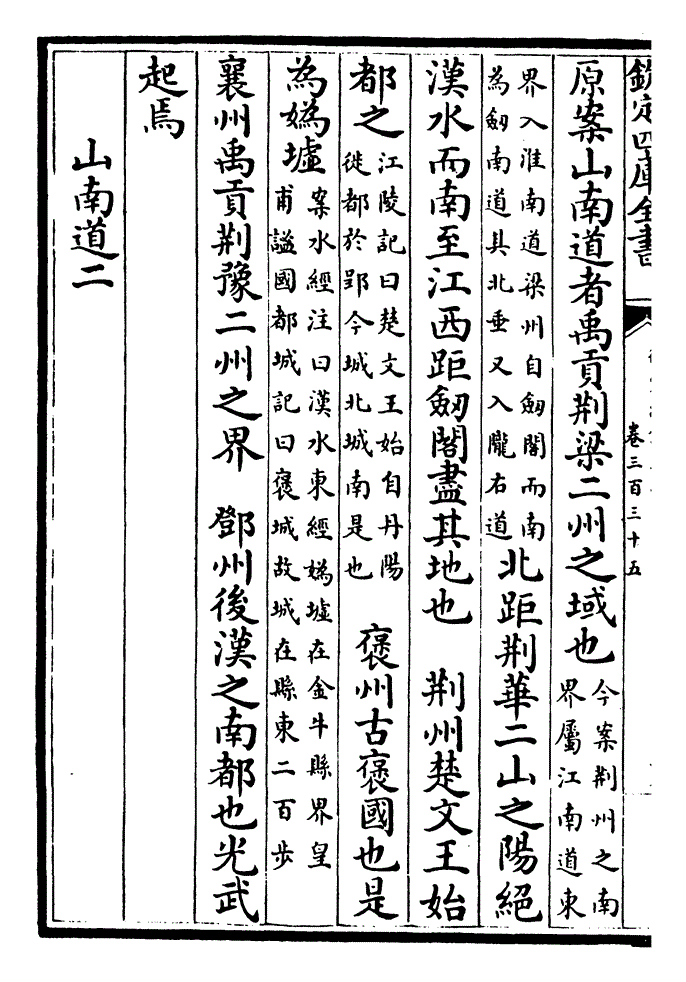 欽定四庫全書
卷三百三十五
原案山南道者禹貢荆梁二州之域也今案荆州之南界屬江南道東
界入淮南道梁州自劔閣而南為劔南道其北垂又入隴右道北距荆華二山之陽絕
漢水而南至江西距劔閣盡其地也　荆州楚文王始
都之江陵記曰楚文王始自丹陽徙都於郢今城北城南是也　褒州古褒國也是
為嬀墟案水經注曰漢水東經嬀墟在金牛縣界皇甫謐國都城記曰褒城故城在縣東二百步
襄州禹貢荆豫二州之界　鄧州後漢之南都也光武
起焉
山南道二